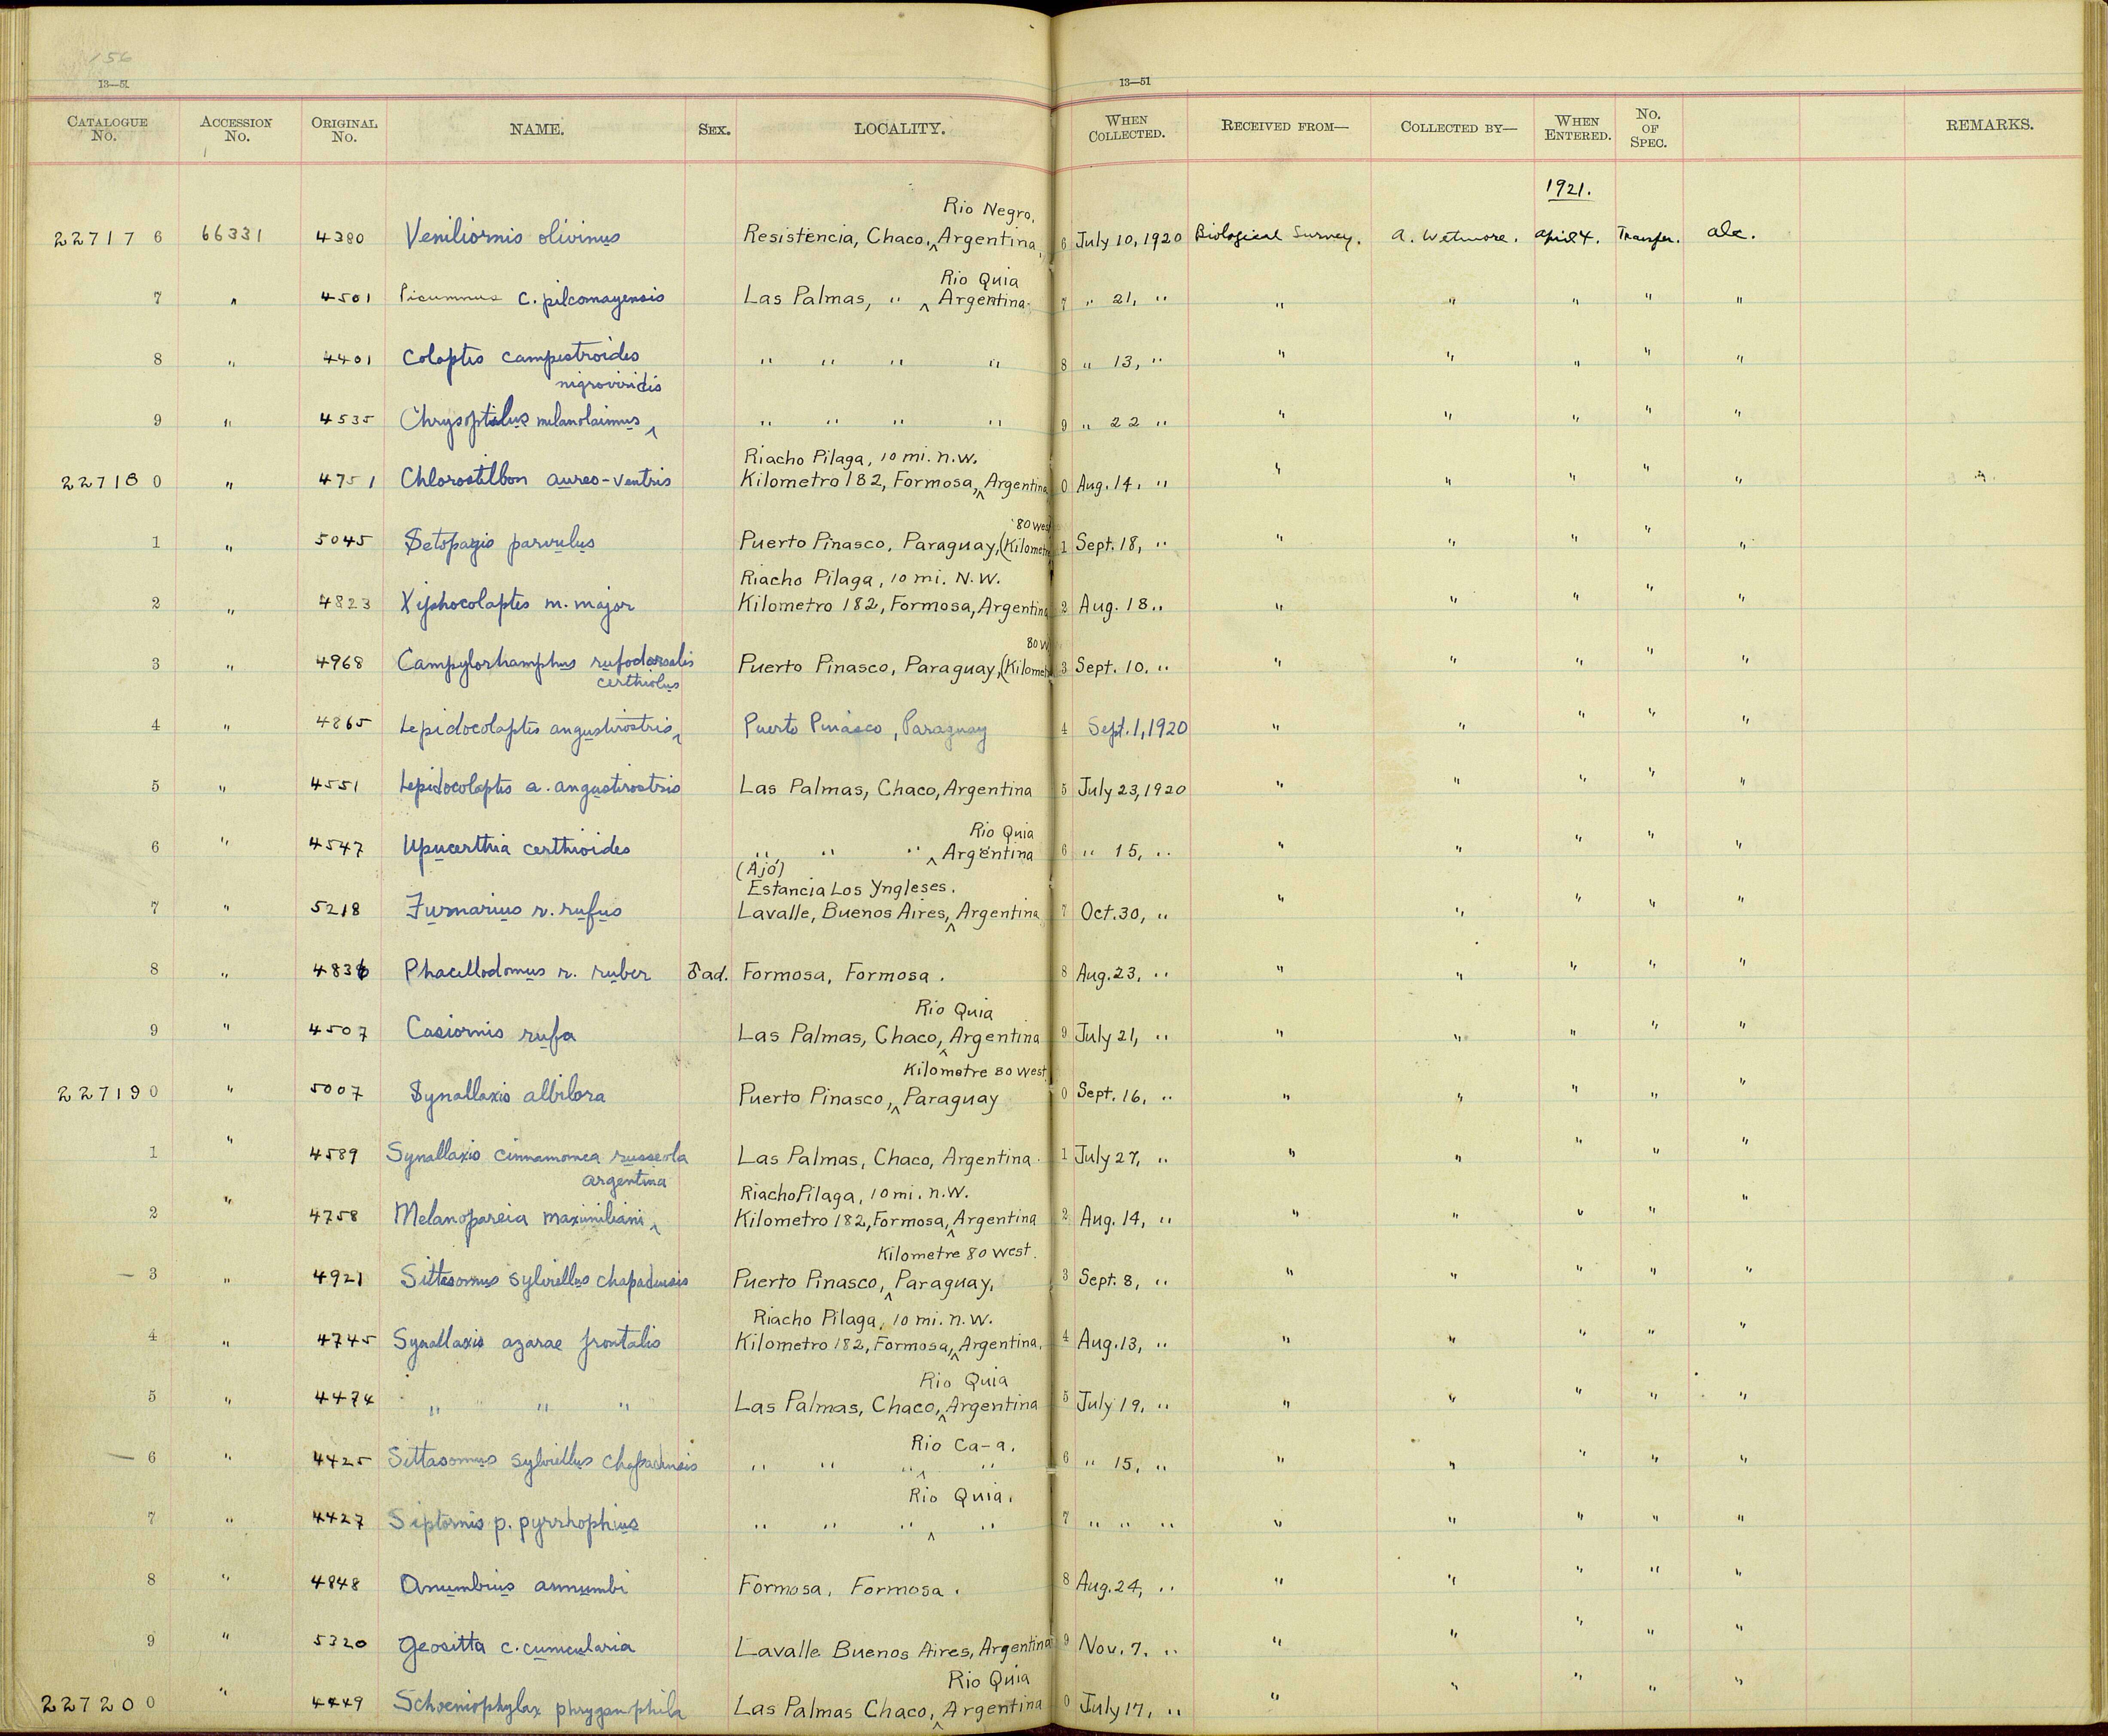 156
13—51
13—51
CATALOGUE No. ACCESSION No. ORIGINAL No. NAME. SEX. LOCALITY. WHEN COLLECTED. RECEIVED FROM— COLLECTED BY— WHEN ENTERED. No. OF SPEC. REMARKS.
1921.
Rio Negro.
22717 6 66331 4380 Veniliornis olivinus Resistencia, Chaco, ^ Argentina, 6 July 10, 1920 Biological Survey. A. Wetmore. April 4. Transfer. alc.
Rio Quia
7 " 4501 Picumnus c. pilcomayensis Las Palmas, " ^ Argentina. 7 " 21, " " " " " "
8 " 4401 Colaptes campestroides " " " " 8 " 13, " " " " " "
nigroviridis
9 " 4535 Chrysoptilus melanolaimus ^ " " " " 9 " 22 " " " " " "
Riacho Pilaga, 10 mi. n.w.
22718 0 " 4751 Chlorostilbon aureo-ventris Kilometro 182, Formosa, ^ Argentina 0 Aug. 14, " " " " " "
80 west
1 " 5045 Setopagis parvulus Puerto Pinasco, Paraguay, (Kilomet 1 Sept. 18, " " " " " "
Riacho Pilaga, 10 mi. N.W.
2 " 4823 Xiphocolaptes m. major Kilometro 182, Formosa, Argentina 2 Aug. 18 " " " " " "
80 W
3 " 4968 Campylorhamphus rufodorsalis Puerto Pinasco, Paraguay, (Kilomet 3 Sept. 10, " " " " " "
certhiolus
4 " 4865 Lepidocolaptes angustirostris ^ Puerto Pinasco, Paraguay 4 Sept. 1, 1920 " " " " "
5 " 4551 Lepidocolaptes a. angustirostris Las Palmas, Chaco, Argentina 5 July 23, 1920 " " " " "
Rio Quia
6 " 4547 Upucerthia certhioides " " " ^ Argentina 6 " 15, " " " " " "
(Ajó)
Estancia Los Yngleses.
7 " 5218 Furnarius r. rufus Lavalle, Buenos Aires, ^ Argentina 7 Oct. 30, " " " " " "
8 " 4836 Phacellodomus r. ruber ♂ ad. Formosa, Formosa. 8 Aug. 23, " " " " " "
Rio Quia
9 " 4507 Casiornis rufa Las Palmas, Chaco, ^ Argentina 9 July 21, " " " " " "
Kilometre 80 West
22719 0 " 5007 Synallaxis albilora Puerto Pinasco, ^ Paraguay 0 Sept. 16, " " " " " "
1 " 4589 Synallaxis cinnamomea russeola Las Palmas, Chaco, Argentina. 1 July 27, " " " " " "
argentina
Riacho Pilaga, 10 mi. n.w.
2 " 4758 Melanopareia maximiliani ^ Kilometro 182, Formosa, ^ Argentina 2 Aug. 14, " " " " " "
Kilometre 80 west.
— 3 " 4921 Sittasomus sylviellus chapadensis Puerto Pinasco, ^ Paraguay, 3 Sept. 8, " " " " " "
Riacho Pilaga, 10 mi. n.w.
4 " 4745 Synallaxis azarae frontalis Kilometro 182, Formosa, ^ Argentina. 4 Aug. 13, " " " " " "
Rio Quia
5 " 4474 " " " Las Palmas, Chaco, ^ Argentina 5 July 19, " " " " " "
Rio Ca-a.
— 6 " 4425 Sittasomus sylviellus chapadensis " " " ^ " 6 " 15, " " " " " "
Rio Quia.
7 " 4427 Siptornis p. pyrrhophius " " " ^ " 7 " " " " " " " "
8 " 4848 Anumbius annumbi Formosa, Formosa. 8 Aug. 24, " " " " " "
9 " 5320 Geositta c. cunicularia Lavalle Buenos Aires, Argentina 9 Nov. 7, " " " " " "
Rio Quia
22720 0 " 4449 Schoeniophylax phryganophila Las Palmas Chaco, ^ Argentina 0 July 17, " " " " " "